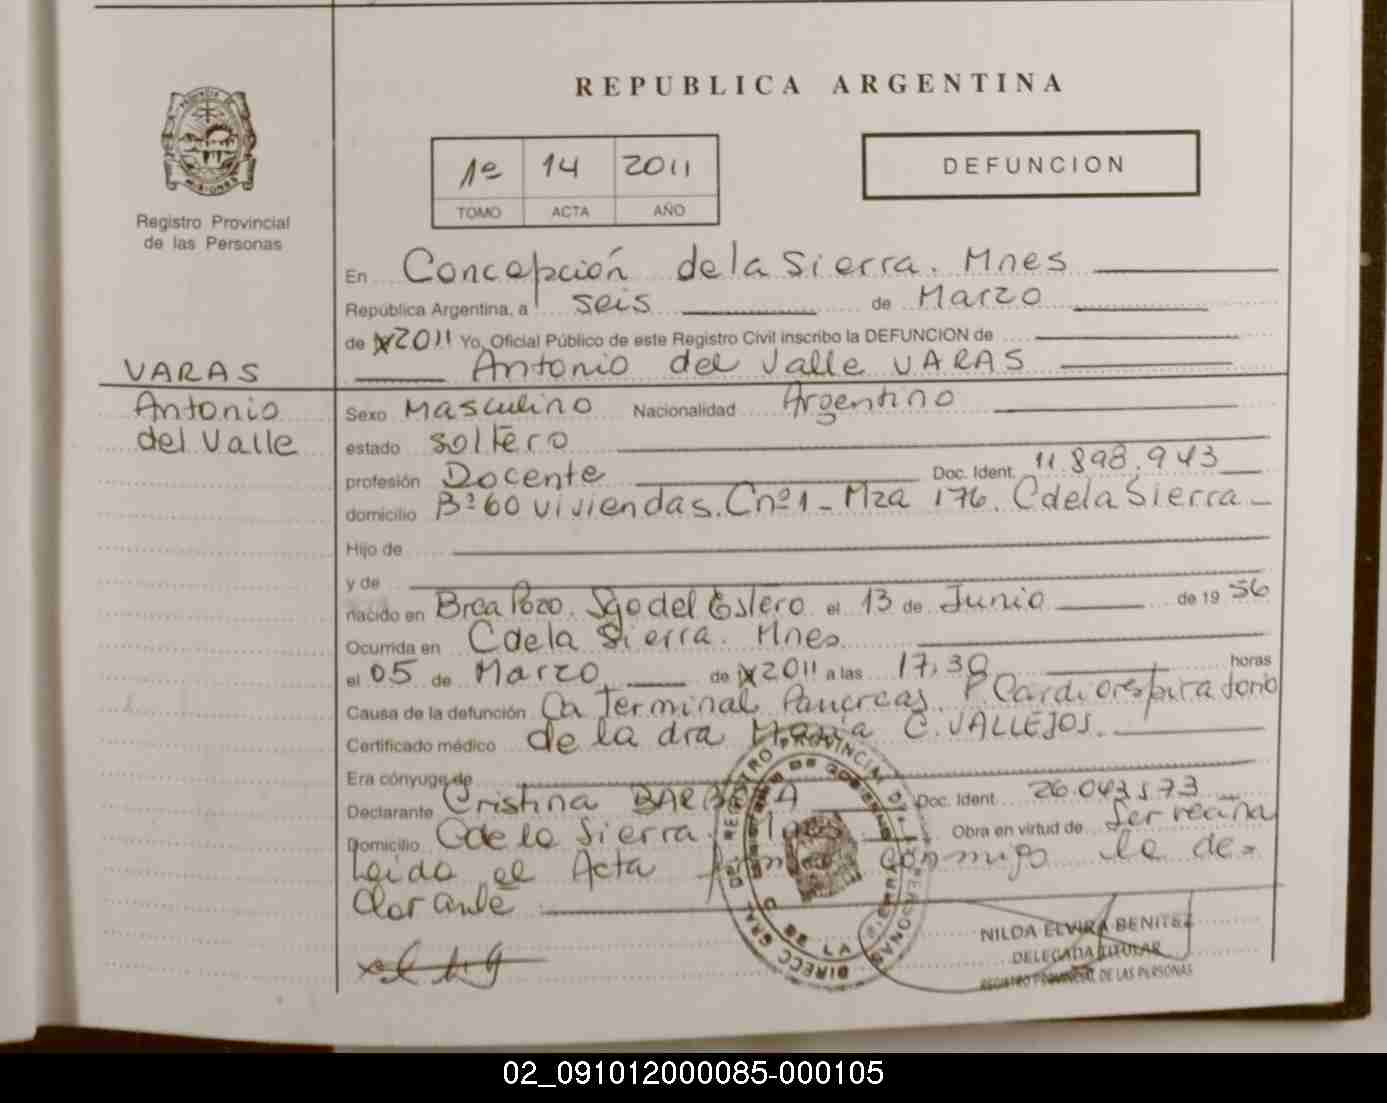 REPUBLICA ARGENTINA
PROVINCIA DE MISIONES
Registro Provincial
de las Personas
1º 14 2011
TOMO ACTA AÑO
DEFUNCION
En Concepción de la Sierra. Mnes
República Argentina, a seis de Marzo
de 2011 Yo, Oficial Público de este Registro Civil inscribo la DEFUNCION de
Antonio del Valle VARAS
VARAS
Antonio
del Valle
Sexo Masculino Nacionalidad Argentino
estado soltero
profesión Docente Doc. Ident. 11.898.943
domicilio Bº 60 viviendas. C nº 1 - Mza 176. C de la Sierra -
Hijo de
y de
nacido en Brea Pozo. Sgo del Estero el 13 de Junio de 19 56
Ocurrida en C de la Sierra. Mnes
el 05 de Marzo de 2011 a las 17,30 horas
Causa de la defunción Ca Terminal Pancreas. P. Cardiorespiratorio
Certificado médico de la dra María C. VALLEJOS.
Era cónyuge de
Declarante Cristina Doc. Ident. 26.043.573
Domicilio C de la Sierra. Mnes Obra en virtud de ser vecina
Leida el Acta firma conmigo la de=
clarante
NILDA ELVIRA BENITEZ
DELEGADA TITULAR
REGISTRO PROVINCIAL DE LAS PERSONAS
02_091012000085-000105